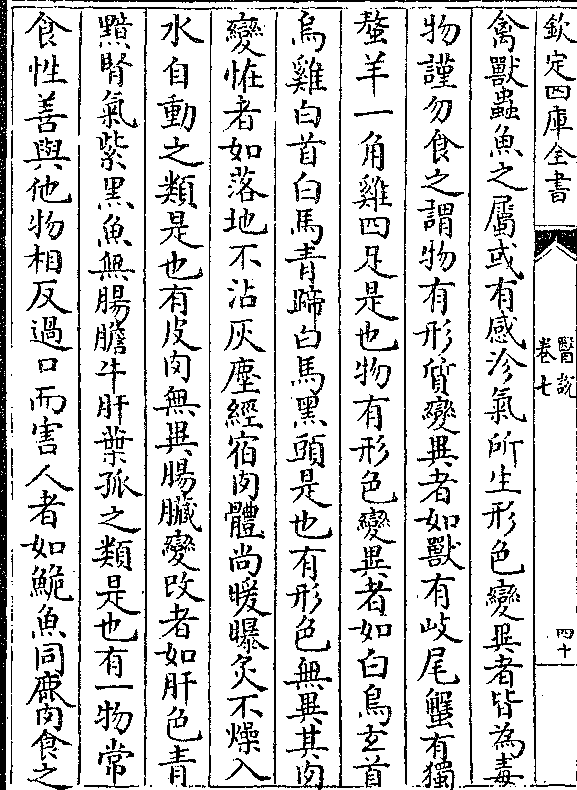 欽定四庫全書
醫說
卷七
四十
禽獸蟲魚之屬或有感沴氣所生形色變異者皆為毒
物謹勿食之謂物有形質變異者如獸有歧尾蟹有獨
螯羊一角雞四足是也物有形色變異者如白鳥玄首
烏雞白首白馬青蹄白馬黑頭是也有形色無異其肉
變恠者如落地不沾灰塵經宿肉體尚暖曝炙不燥入
水自動之類是也有皮肉無異腸臟變改者如肝色青
黑腎氣紫黑魚無腸膽牛肝葉孤之類是也有一物常
食性善與他物相反過口而害人者如鮠魚同鹿肉食之